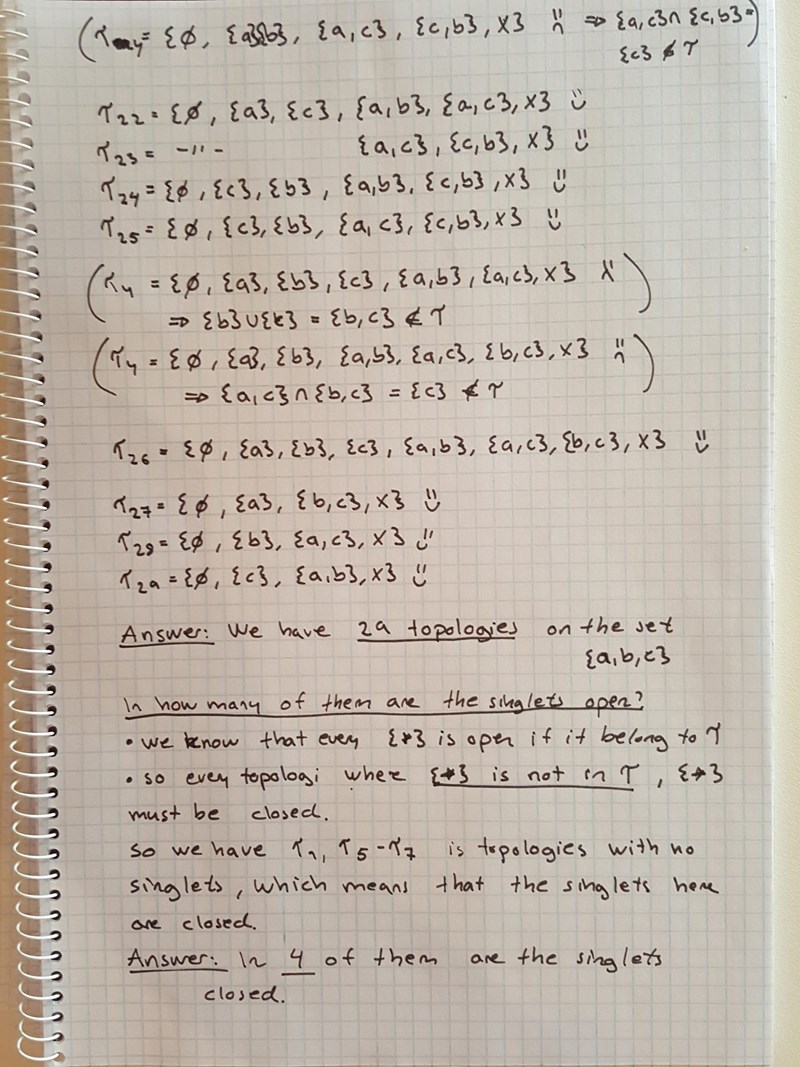 (τ_y = {ø, {a}{b}, {a,c}, {c,b}, X} ⇒ {a,c}∩{c,b}=)
{c} ∉ τ
τ22 = {ø, {a}, {c}, {a,b}, {a,c}, X}
τ23 = -"- {a,c}, {c,b}, X}
τ24 = {ø, {c}, {b}, {a,b}, {c,b}, X}
τ25 = {ø, {c}, {b}, {a,c}, {c,b}, X}
(τy = {ø, {a}, {b}, {c}, {a,b}, {a,c}, X}
⇒ {b}∪{c} = {b,c} ∉ τ)
(τy = {ø, {a}, {b}, {a,b}, {a,c}, {b,c}, X}
⇒ {a,c}∩{b,c} = {c} ∉ τ)
τ26 = {ø, {a}, {b}, {c}, {a,b}, {a,c}, {b,c}, X}
τ27 = {ø, {a}, {b,c}, X}
τ28 = {ø, {b}, {a,c}, X}
τ29 = {ø, {c}, {a,b}, X}
Answer: We have 29 topologies on the set
{a,b,c}
In how many of them are the singlets open?
• we know that every {*} is open if it belong to τ
• so every topologi where {*} is not in τ, {*}
must be closed.
so we have τ1, τ5-τ7 is topologies with no
singlets, which means that the singlets here
are closed.
Answer: In 4 of them are the singlets
closed.